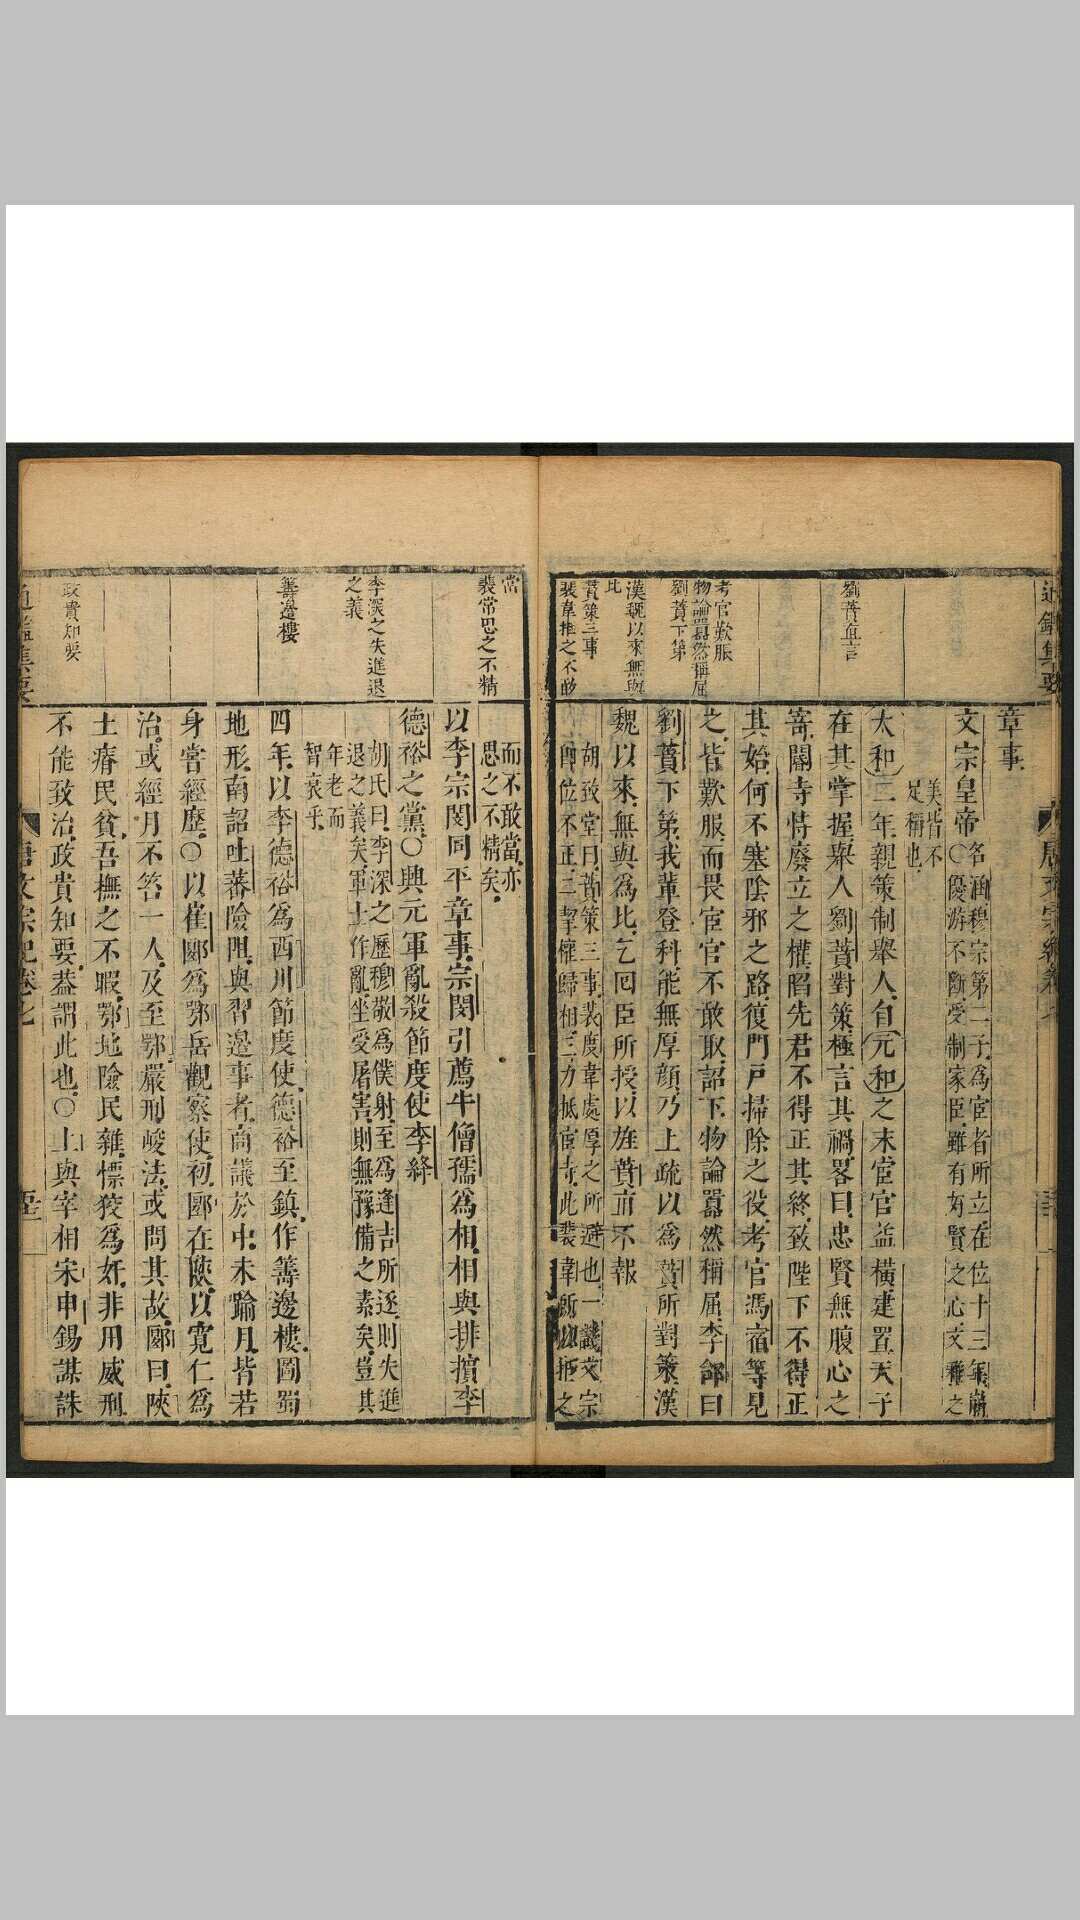 章事
文宗皇帝
名涵穆宗第二子爲宦者所立在位十三年崩
○優游不斷受制家臣雖有好賢之心文雅之
美皆不
足稱也
太和二年親策制舉人自元和之末宦官益橫建置天子
在其掌握舉人劉蕡對策極言其禍畧曰忠賢無腹心之
寄閽寺恃廢立之權陷先君不得正其終致陛下不得正
其始何不塞陰邪之路復門戶掃除之役考官馮宿等見
之皆歎服而畏宦官不敢取詔下物論囂然稱屈李郃曰
劉蕡下第我輩登科能無厚顔乃上疏以爲蕡所對策漢
魏以來無與爲比乞回臣所授以旌蕡直不報
胡致堂曰蕡策三事裴度韋處厚之所避也一譏文宗
卽位不正二
歸相三力抵宦寺此裴韋所以拒之
劉蕡直言
考官歎服
物論囂然稱屈
劉蕡下第
漢魏以來無與
比
蕡策三事
裴韋拒之不敢
當
裴常思之不精
李深之失進退
之義
籌邊樓
政貴知要
而不敢當亦
思之不精矣
以李宗閔同平章事宗閔引薦牛僧孺爲相相與排擯李
德裕之黨○興元軍亂殺節度使李絳
胡氏曰李深之歷穆敬爲僕射至爲逢吉所逐則失進
退之義矣軍士作亂坐受屠害則無豫備之素矣豈其
年老而
智衰乎
四年以李德裕爲西川節度使德裕至鎮作籌邊樓圖蜀
地形南詔吐蕃險阻與習邊事者商議於中未踰月皆若
身嘗經歷○以崔郾爲鄂岳觀察使初郾在陝以寬仁爲
治或經月不笞一人及至鄂嚴刑峻法或問其故郾曰陝
土瘠民貧吾撫之不暇鄂地險民雜慓狡爲奸非用威刑
不能致治政貴知要葢謂此也○上與宰相宋申錫謀誅
唐文宗紀卷七